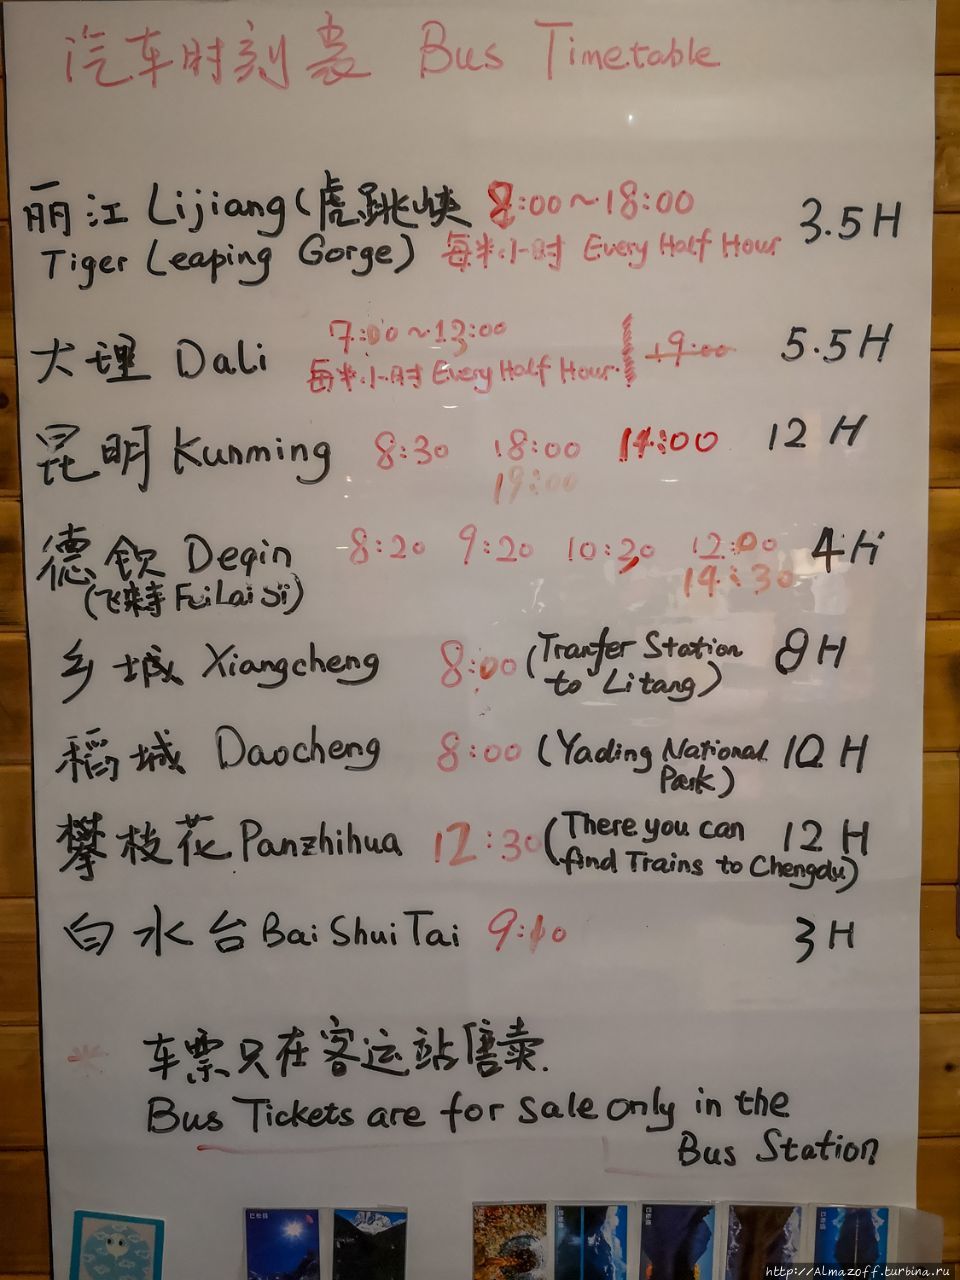 汽车时刻表 Bus Timetable
丽江 Lijiang(虎跳峡 8:00~18:00 3.5H
Tiger Leaping Gorge) 每半小时 Every Half Hour
大理 Dali 7:00~13:00 19:00 5.5H
每半小时 Every Half Hour
昆明 Kunming 8:30 18:00 14:00 12H
19:00
德钦 Deqin 8:20 9:20 10:30 12:00 4H
(飞来寺 FeiLai Si) 14:30
乡城 Xiangcheng 8:00 (Tranfer Station 8H
to Litang)
稻城 Daocheng 8:00 (Yading National 10H
Park)
攀枝花 Panzhihua 12:30 (There you can 12H
find Trains to Chengdu)
白水台 Bai Shui Tai 9:10 3H
车票只在客运站售卖.
Bus Tickets are for sale only in the
Bus Station
http://Almazoff.turbina.ru